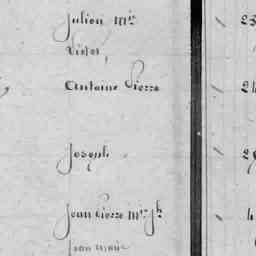 Julien Mie
Victor,
Antoine Pierre
Joseph
Jean Pierre Mie Jh
Jean Marie